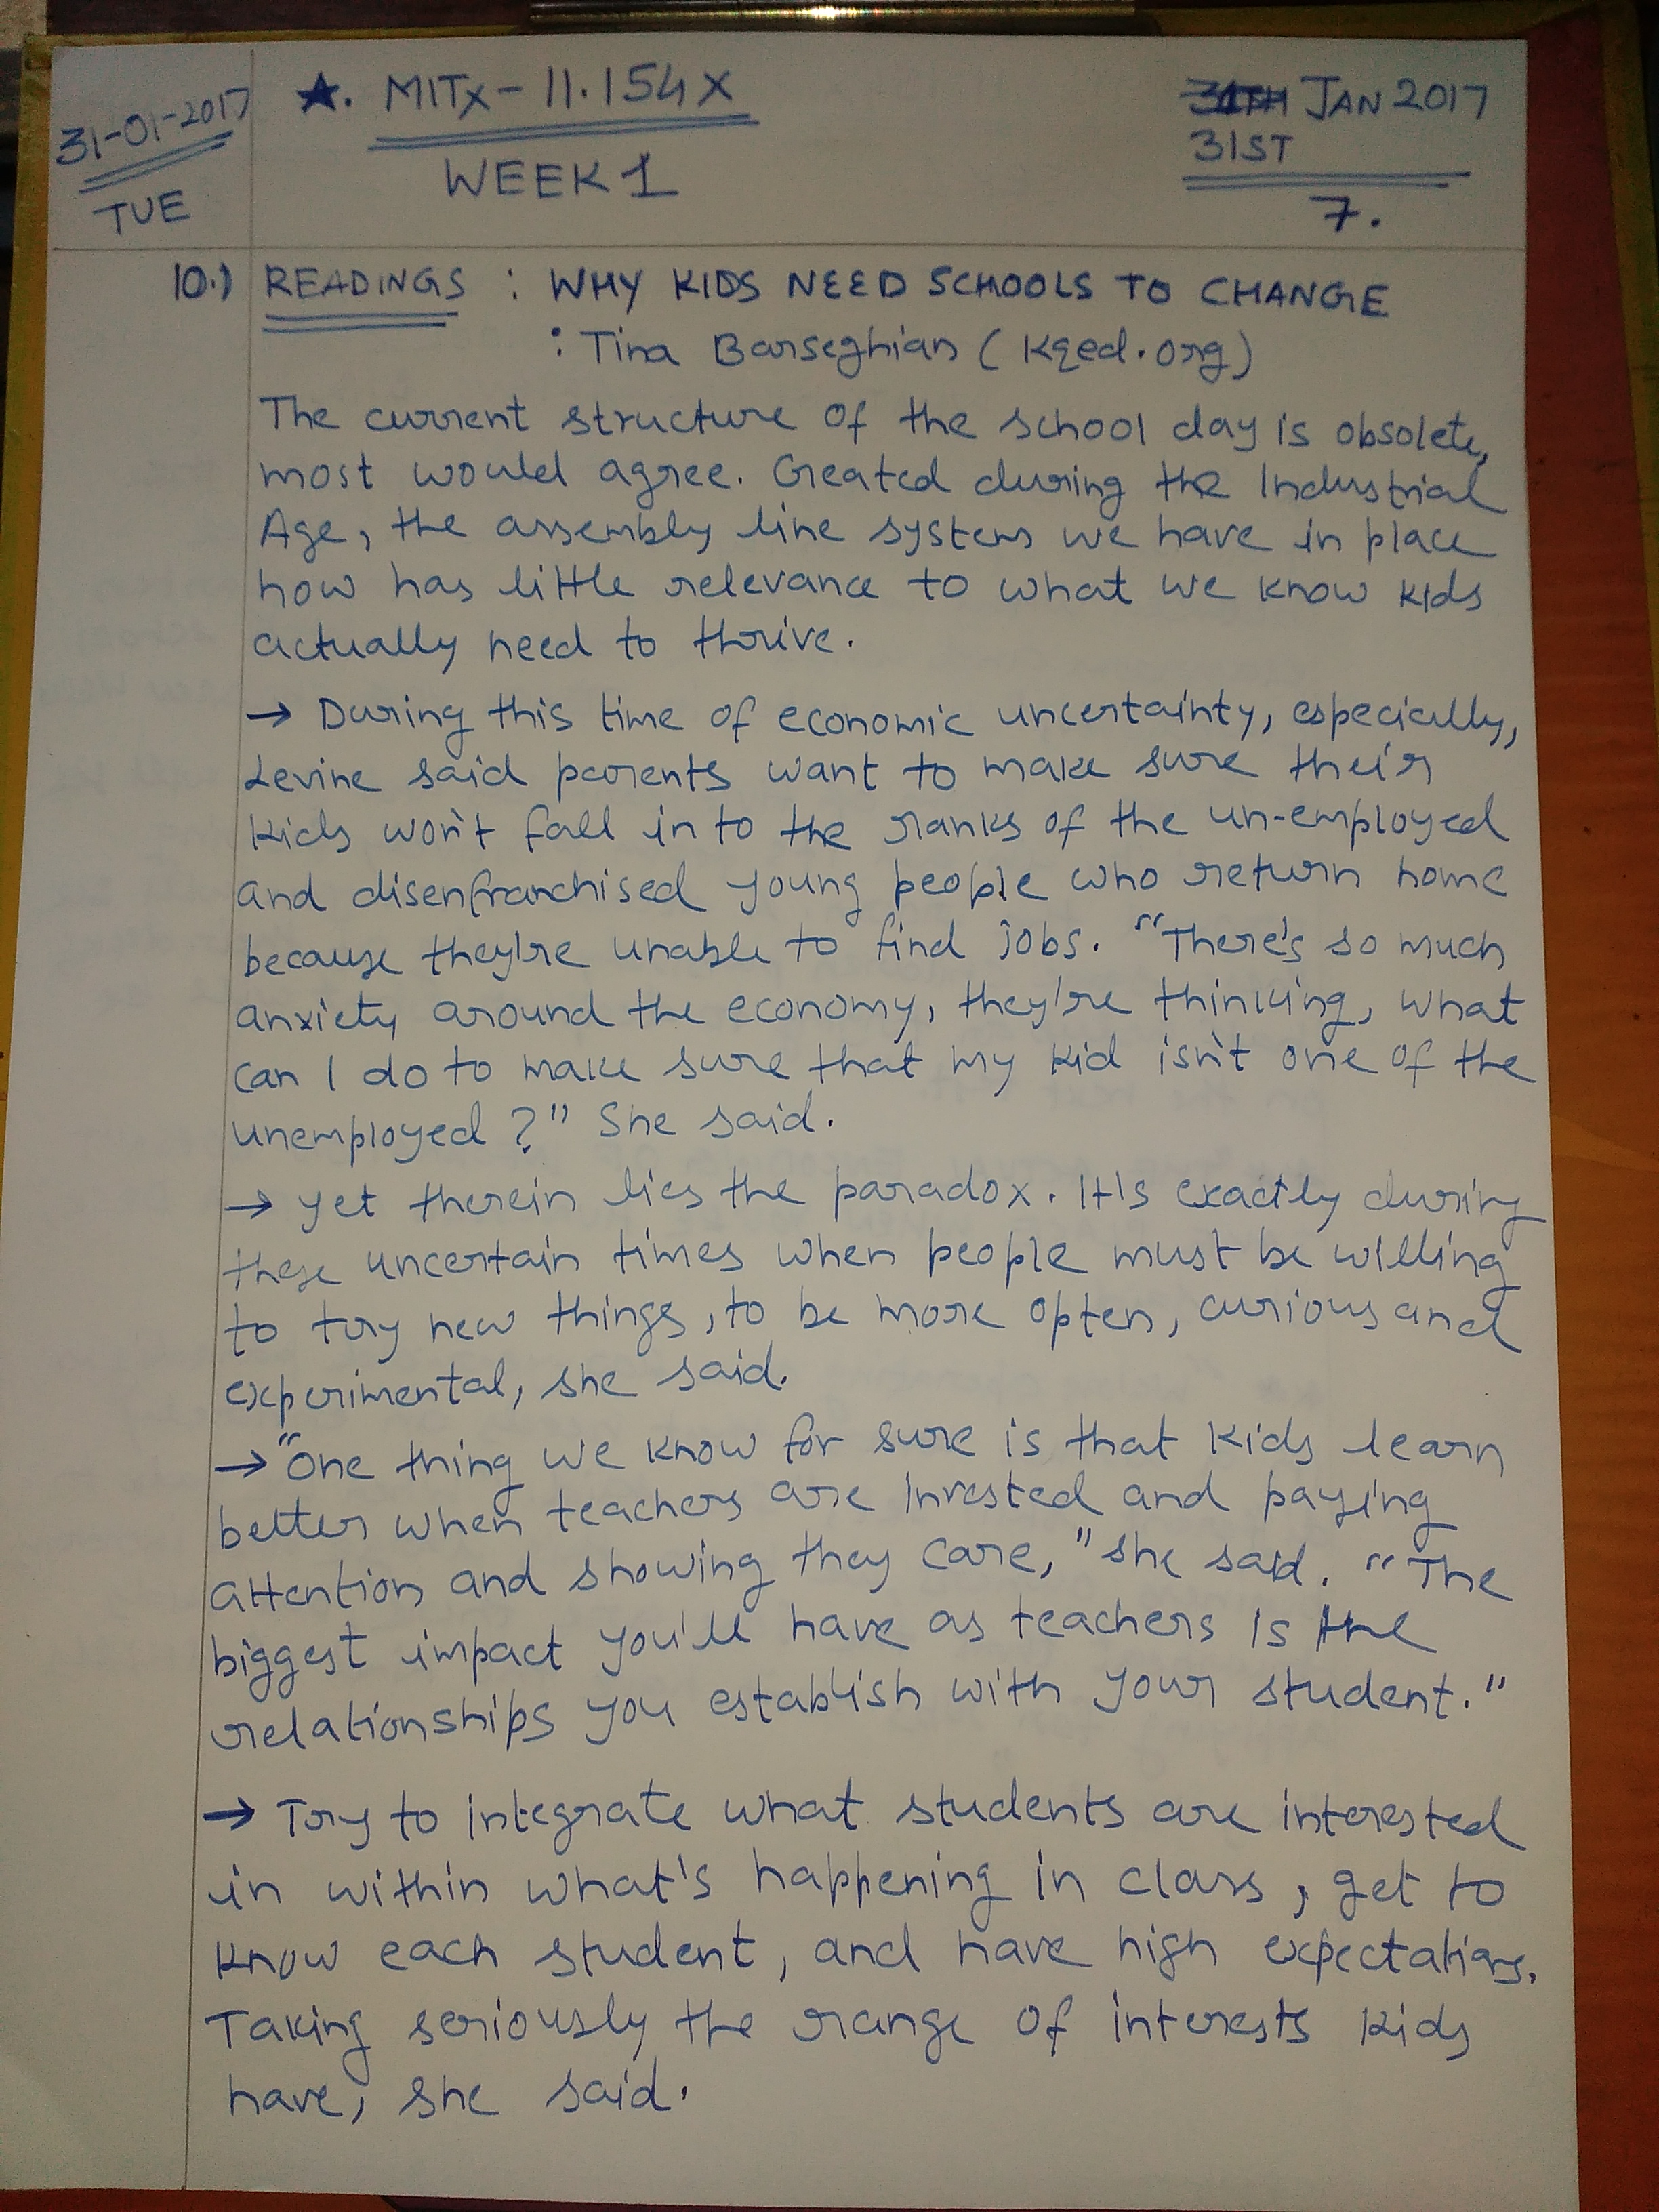 31-01-2017
TUE
★. MITx - 11.154X
WEEK 1
31TH JAN 2017
31ST
7.
10.) READINGS : WHY KIDS NEED SCHOOLS TO CHANGE
: Tina Barseghian ( Kqed.org)
The current structure of the school day is obsolete,
most would agree. Created during the Industrial
Age, the assembly line system we have in place
now has little relevance to what we know kids
actually need to thrive.
→ During this time of economic uncertainty, especially,
Levine said parents want to make sure their
kids won't fall in to the ranks of the un-employed
and disenfranchised young people who return home
because they're unable to find jobs. "There's so much
anxiety around the economy, they're thinking, what
can I do to make sure that my kid isn't one of the
unemployed?" She said.
→ Yet therein lies the paradox. It's exactly during
these uncertain times when people must be willing
to try new things, to be more opten, curious and
experimental, she said.
→ "One thing we know for sure is that kids learn
better when teachers are invested and paying
attention and showing they care," she said. "The
biggest impact you'll have as teachers is the
relationships you establish with your student."
→ Try to integrate what students are interested
in within what's happening in class, get to
know each student, and have high expectations.
Taking seriously the range of interests kids
have, she said.